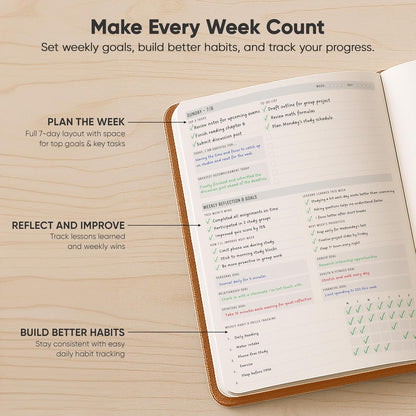 Make Every Week Count
Set weekly goals, build better habits, and track your progress.
PLAN THE WEEK
Full 7-day layout with space
for top goals & key tasks
REFLECT AND IMPROVE
Track lessons learned
and weekly wins
BUILD BETTER HABITS
Stay consistent with easy
daily habit tracking
SUNDAY - 7/6
Review notes for upcoming exams
Finish reading chapter 8
Submit discussion post
TO-DO LIST
Draft outline for group project
Review math formulas
Plan Monday's study schedule
TODAY, I AM GRATEFUL FOR
Having the time and focus to catch up
on studies and reset for the week
GREATEST ACCOMPLISHMENT TODAY
Finally finished and submitted the
discussion post ahead of the deadline
WEEKLY REFLECTION & GOALS
THIS WEEK'S WINS
Completed all assignments on time
Participated in 2 study groups
Improved quiz score by 15%
HOW I'LL IMPROVE NEXT WEEK
Limit phone use during study
Stick to morning study blocks
Be more proactive in group work
LESSONS LEARNED THIS WEEK
Studying a bit each day works better than cramming
Asking questions helps me understand faster
I focus better after short breaks
NEXT WEEK'S PRIORITIES
Prep early for Wednesday's test
Finalize project slides by Friday
Sleep 7+ hours every night
PERSONAL GOAL
Journal daily for 5 minutes
RELATIONSHIP GOAL
Check in with a classmate I've lost touch with
SPIRITUAL GOAL
Take 10 minutes each morning for quiet reflection
CAREER GOAL
Research internship opportunities
HEALTH & FITNESS GOAL
Stretch and walk every day
FINANCIAL GOAL
WEEKLY HABIT & SKILLS TRACKING
1. Daily Reading
2. Water intake
3. Phone-free study
4. Exercise
5. Sleep before